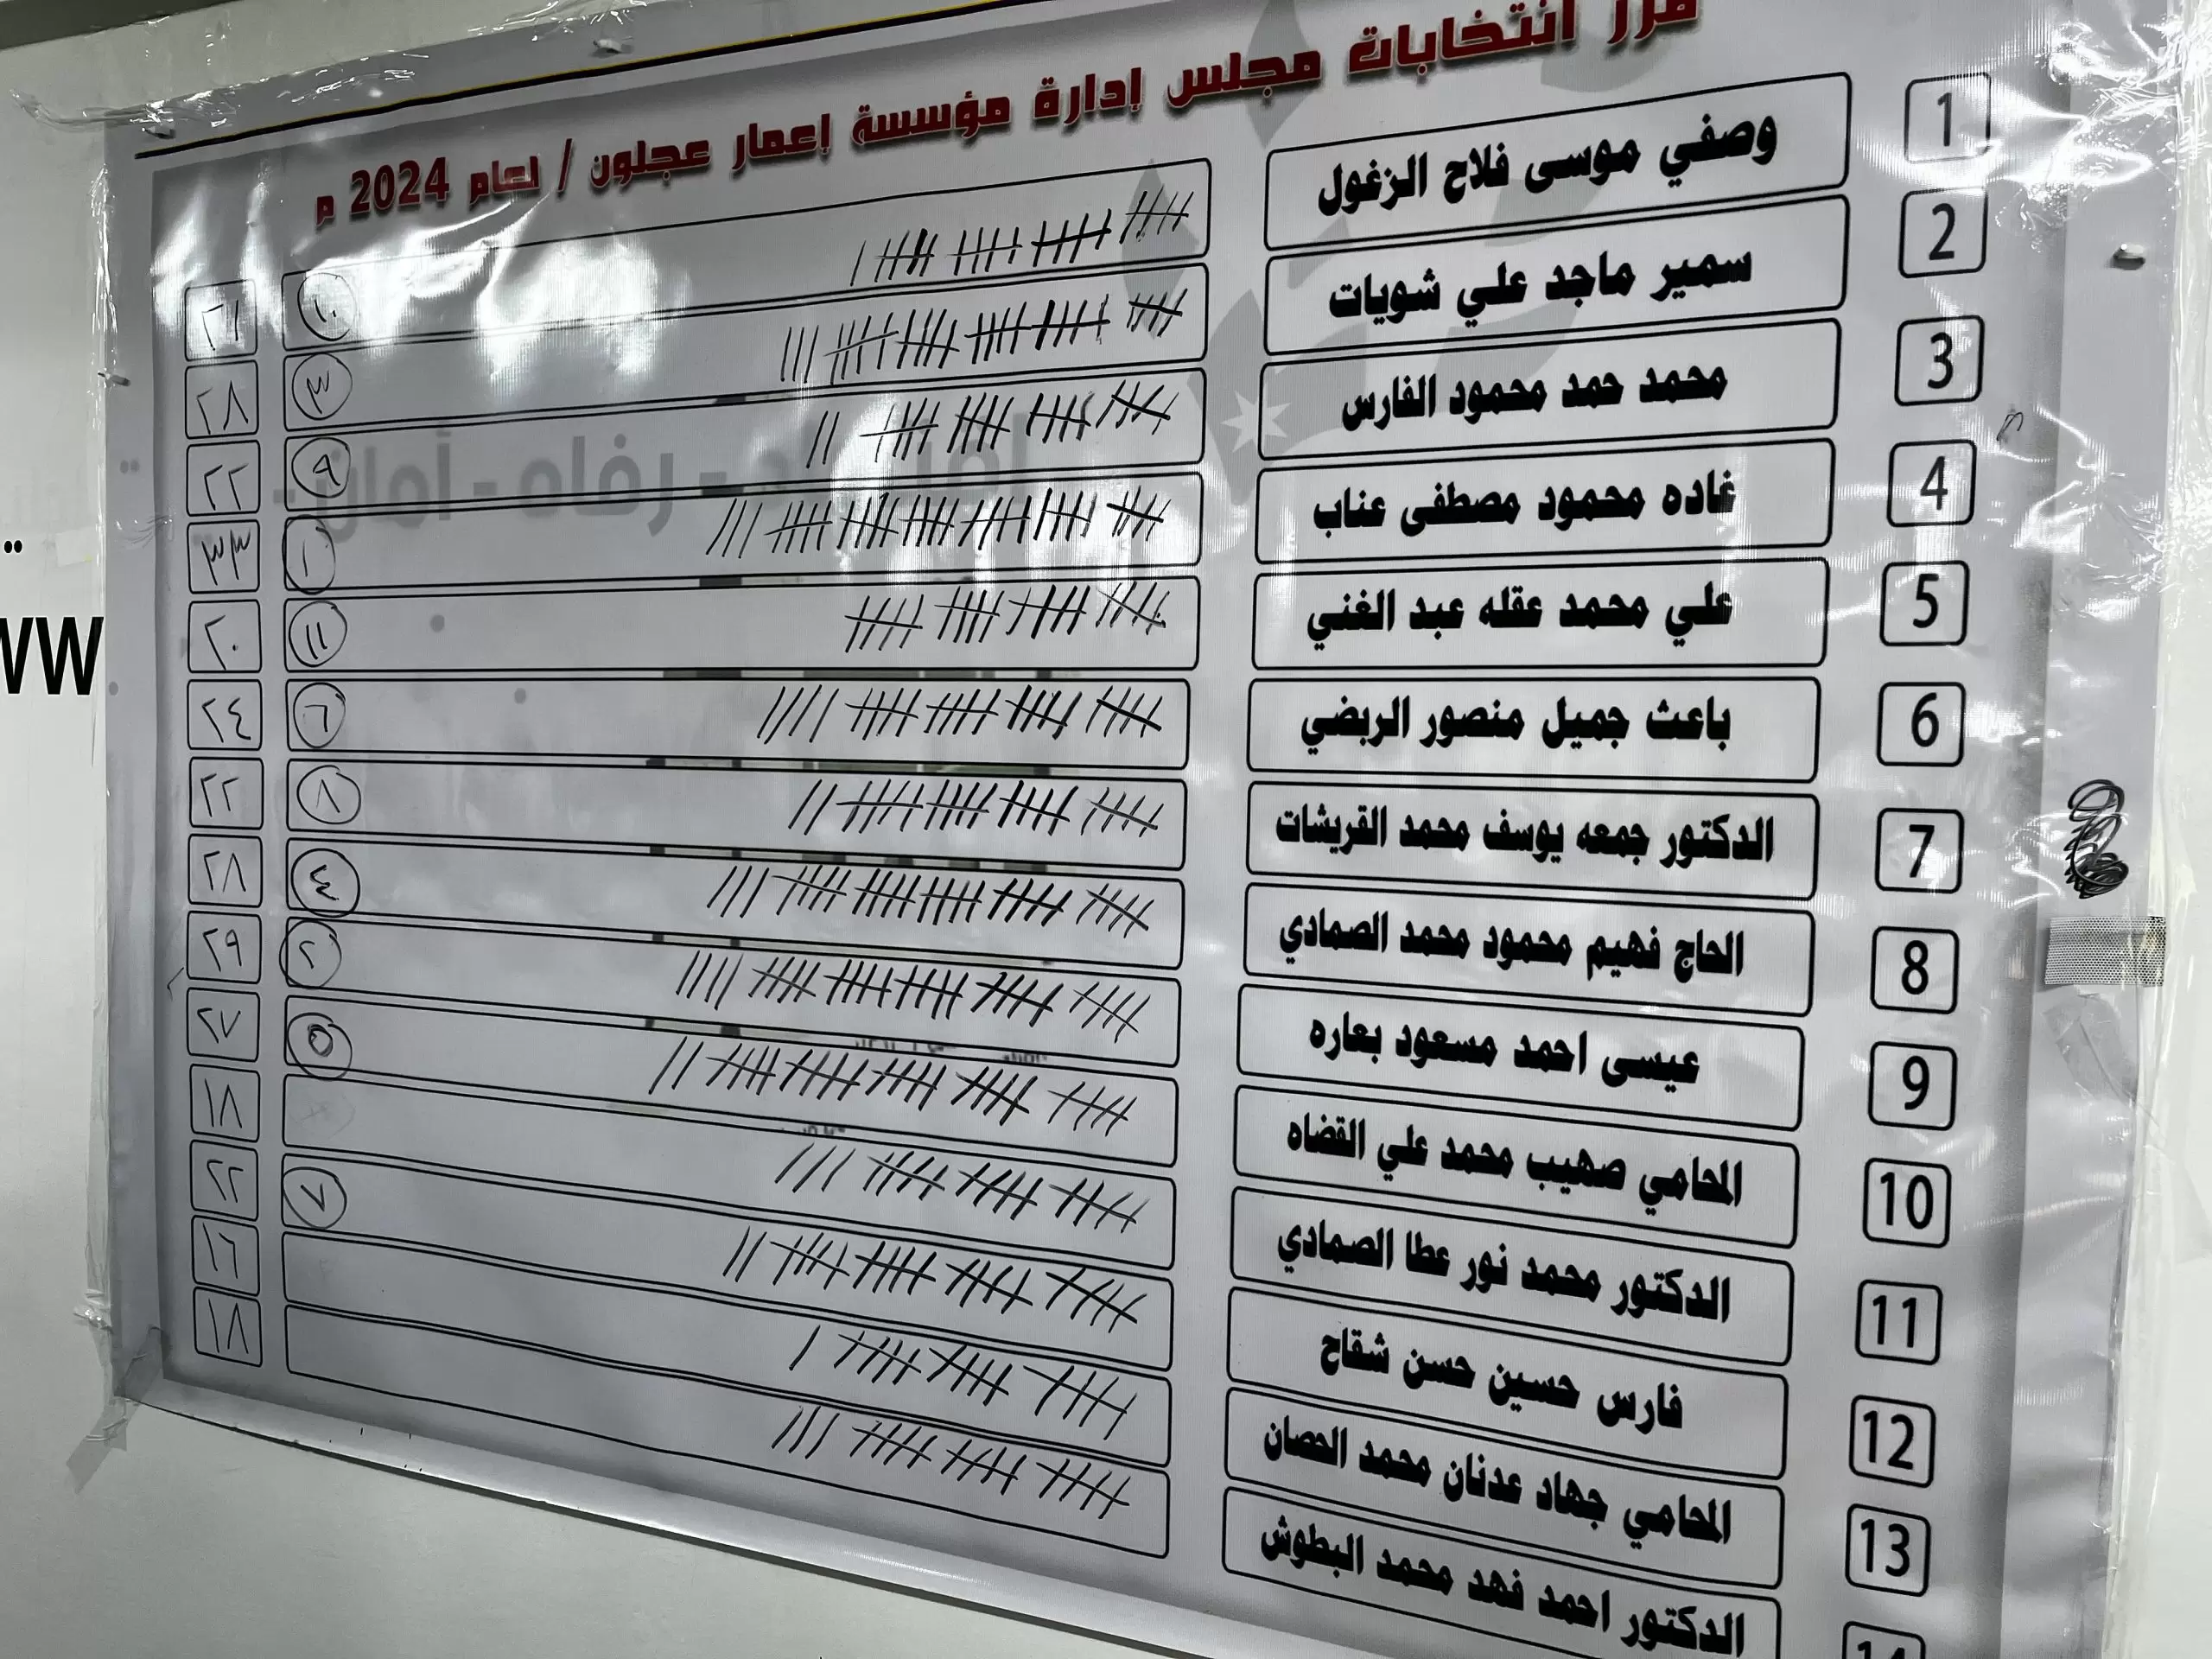 فرز انتخابات مجلس إدارة مؤسسة إعمار عجلون / لعام 2024 م
1 وصفي موسى فلاح الزغول ١٠ ٢١
2 سمير ماجد علي شويات ٣ ٢٨
3 محمد حمد محمود الفارس ٩ ٢٢
4 غاده محمود مصطفى عناب ١ ٣٣
5 علي محمد عقله عبد الغني ١١ ٢٠
6 باعث جميل منصور الربضي ٦ ٢٤
7 الدكتور جمعه يوسف محمد القريشات ٨ ٢٢
8 الحاج فهيم محمود محمد الصمادي ٤ ٢٨
9 عيسى احمد مسعود بعاره ٢ ٢٩
10 المحامي صهيب محمد علي القضاه ٥ ٢٧
11 الدكتور محمد نور عطا الصمادي ١٨
12 فارس حسين حسن شقاح ٧ ٢٢
13 المحامي جهاد عدنان محمد الحصان ١٦
14 الدكتور احمد فهد محمد البطوش ١٨
رفاه - أمان -